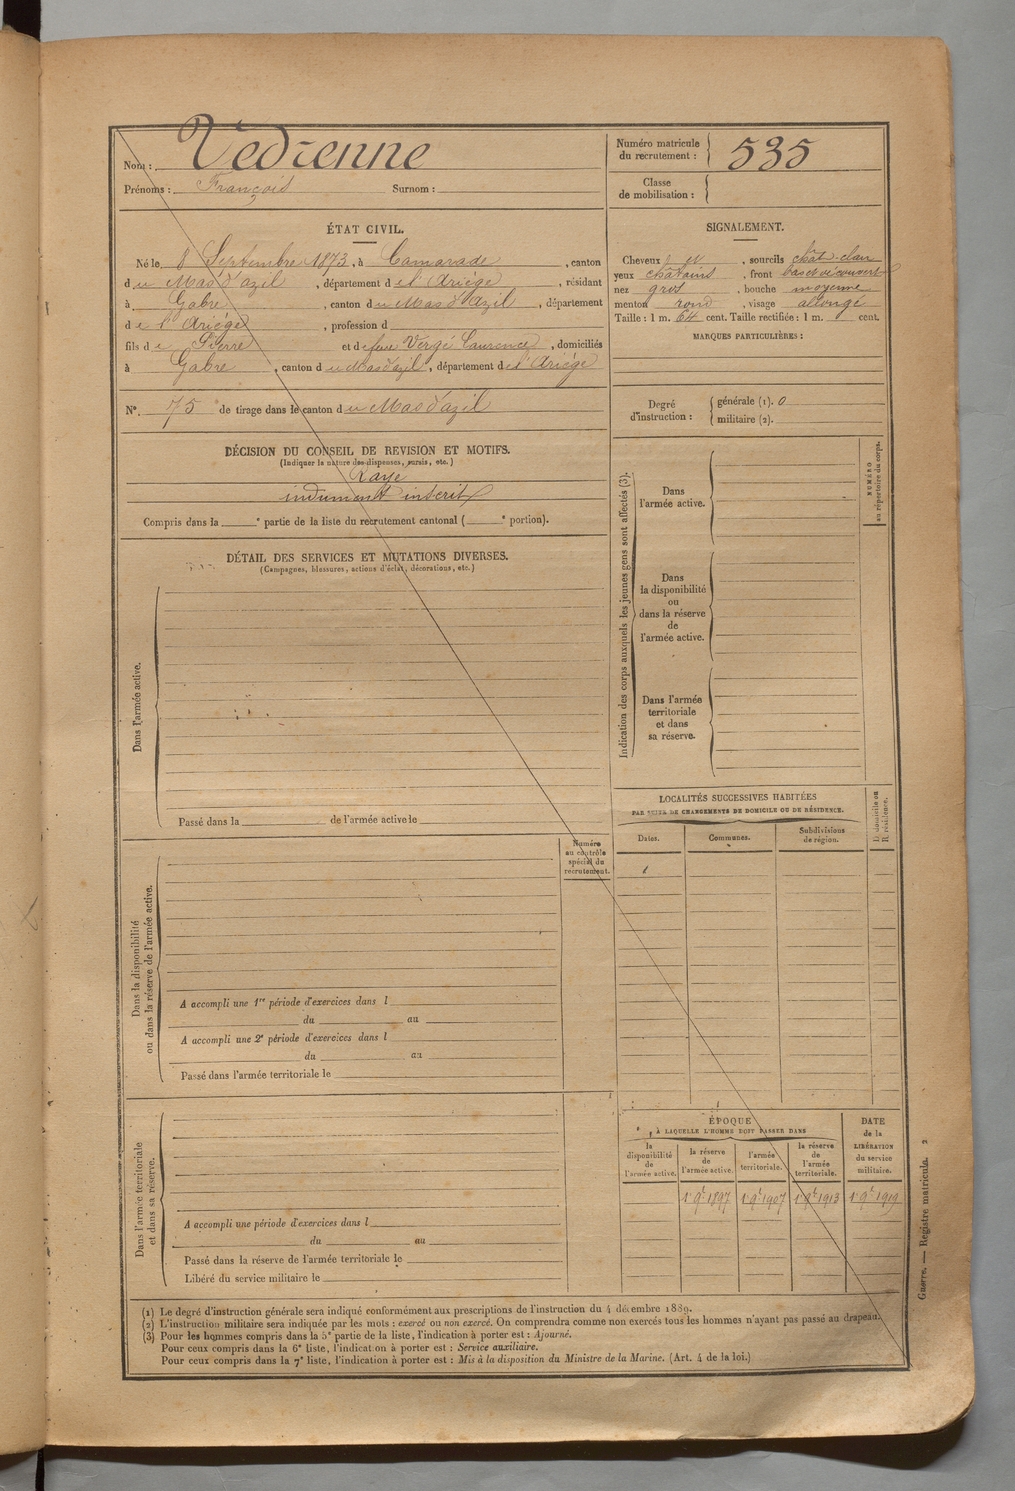 Nom : Vedrenne
Prénoms : François Surnom :
Numéro matricule du recrutement : 535
Classe de mobilisation :
ÉTAT CIVIL.
Né le 8 Septembre 1873, à Camarade, canton
du Mas d'azil, département de l'Ariège, résidant
à Gabre, canton du Mas d'Azil, département
de l'Ariège, profession d
fils de Pierre et de feue Vergé Laurence, domiciliés
à Gabre, canton du Mas d'azil, département de l'Ariège
N° 75 de tirage dans le canton du Mas d'azil
SIGNALEMENT.
Cheveux et, sourcils chât. clair
yeux châtains, front bas et découvert
nez gros, bouche moyenne
menton rond, visage allongé
Taille : 1 m. 64 cent. Taille rectifiée : 1 m. cent.
MARQUES PARTICULIÈRES :
Degré d'instruction : générale (1). 0
militaire (2).
DÉCISION DU CONSEIL DE REVISION ET MOTIFS.
(Indiquer la nature des dispenses, sursis, etc.)
Rayé
indument inscrit
Compris dans la e partie de la liste du recrutement cantonal ( e portion).
DÉTAIL DES SERVICES ET MUTATIONS DIVERSES.
(Campagnes, blessures, actions d'éclat, décorations, etc.)
Dans l'armée active.
Passé dans la de l'armée active le
Numéro au contrôle spécial du recrutement.
Dans la disponibilité ou dans la réserve de l'armée active.
A accompli une 1re période d'exercices dans l
du au
A accompli une 2e période d'exercices dans l
du au
Passé dans l'armée territoriale le
Dans l'armée territoriale et dans sa réserve.
A accompli une période d'exercices dans l
du au
Passé dans la réserve de l'armée territoriale le
Libéré du service militaire le
Indication des corps auxquels les jeunes gens sont affectés (3).
NUMÉRO au répertoire du corps.
Dans l'armée active.
Dans la disponibilité ou dans la réserve de l'armée active.
Dans l'armée territoriale et dans sa réserve.
LOCALITÉS SUCCESSIVES HABITÉES
PAR SUITE DE CHANGEMENTS DE DOMICILE OU DE RÉSIDENCE.
Dates. Communes. Subdivisions de région. D. domicile ou R. résidence.
ÉPOQUE
À LAQUELLE L'HOMME DOIT PASSER DANS
la disponibilité de l'armée active. la réserve de l'armée active. l'armée territoriale. la réserve de l'armée territoriale.
DATE de la LIBÉRATION du service militaire.
1 9e 1897 1 9e 1907 1 9e 1913 1 9e 1919
(1) Le degré d'instruction générale sera indiqué conformément aux prescriptions de l'instruction du 4 décembre 1889.
(2) L'instruction militaire sera indiquée par les mots : exercé ou non exercé. On comprendra comme non exercés tous les hommes n'ayant pas passé au drapeau.
(3) Pour les hommes compris dans la 5e partie de la liste, l'indication à porter est : Ajourné.
Pour ceux compris dans la 6e liste, l'indication à porter est : Service auxiliaire.
Pour ceux compris dans la 7e liste, l'indication à porter est : Mis à la disposition du Ministre de la Marine. (Art. 4 de la loi.)
Guerre. — Registre matricule. 2